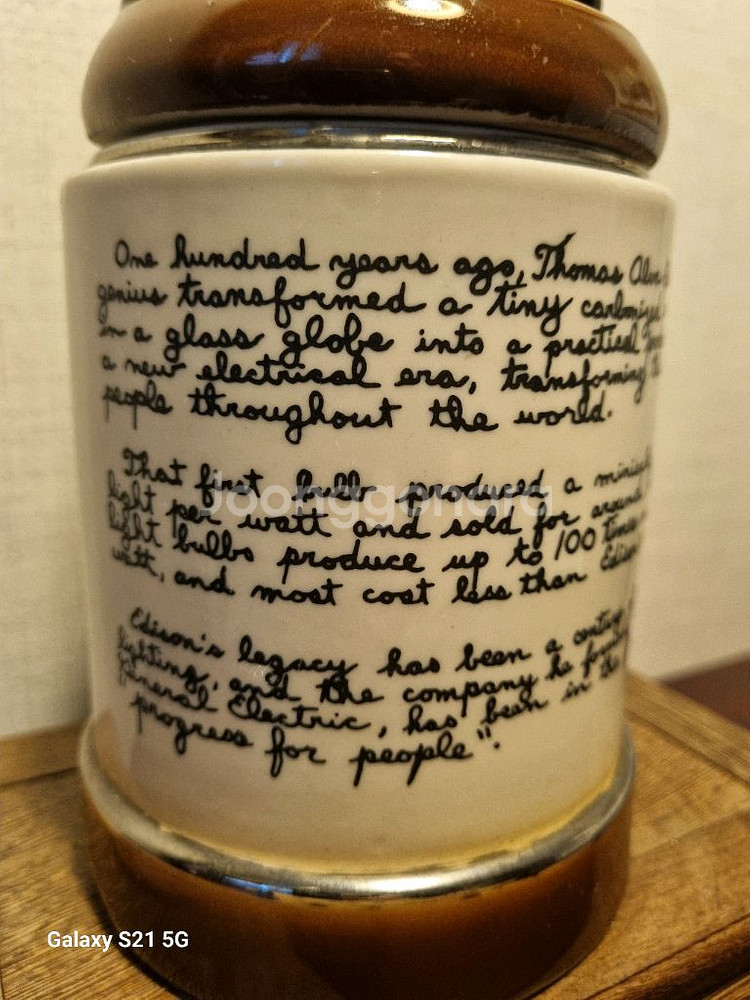 One hundred years ago, Thomas Alva
genius transformed a tiny carbonized
in a glass globe into a practical
a new electrical era, transforming
people throughout the world.
That first bulb produced a
light per watt and sold for around
light bulbs produce up to 100 times
watt, and most cost less than
Edison's legacy has been a century
lighting, and the company he
General Electric, has been in the
progress for people".
Joonggonara
Galaxy S21 5G